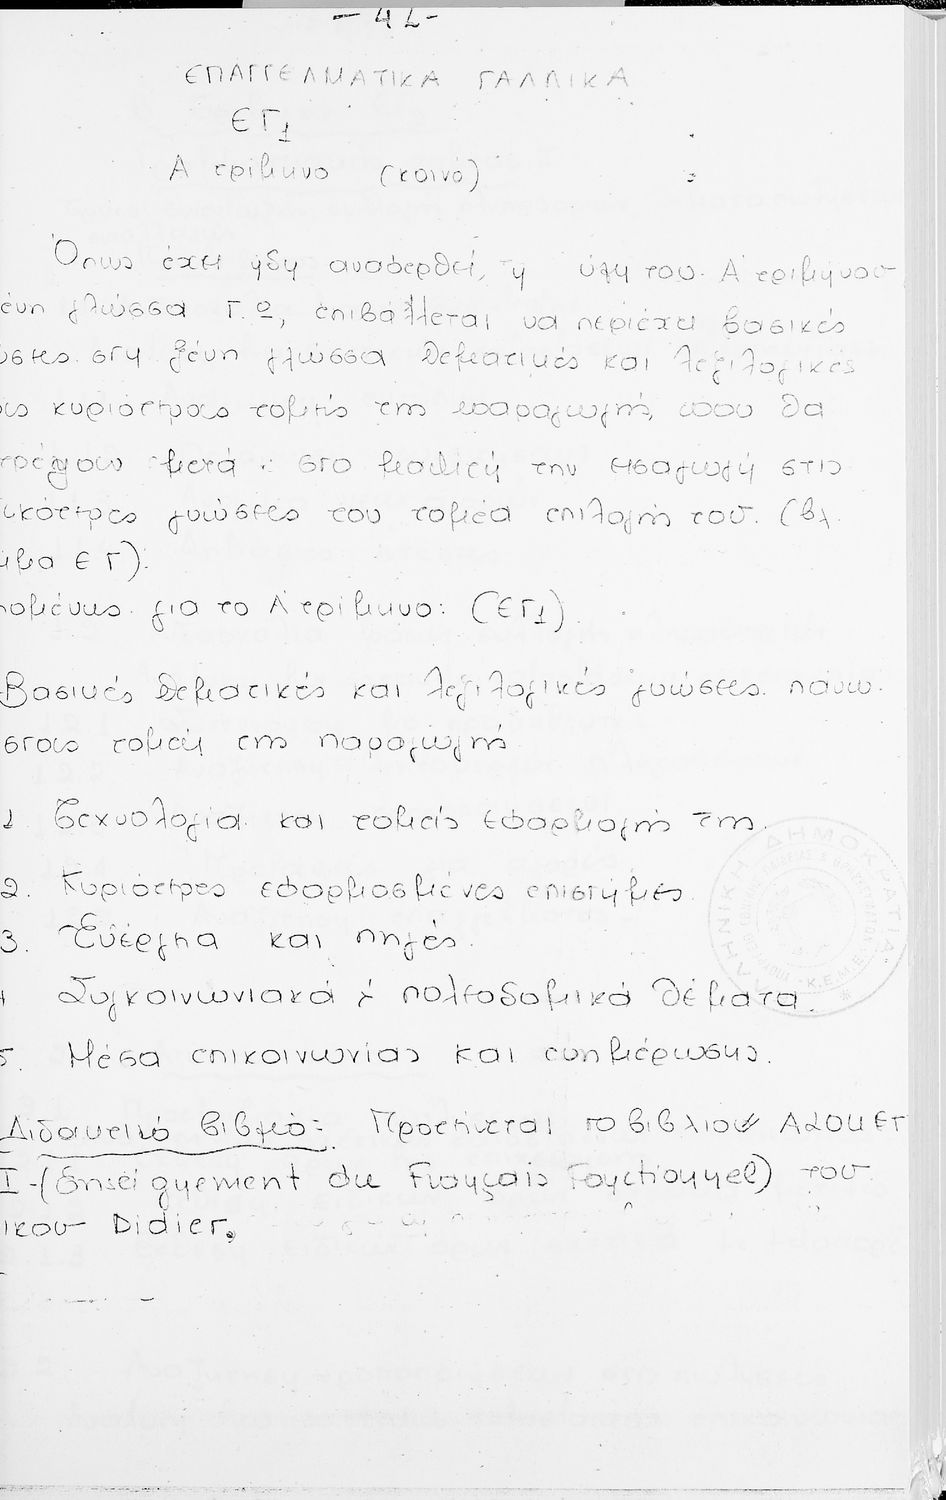 - 42 -
ΕΠΑΓΓΕΛΜΑΤΙΚΑ ΓΑΛΛΙΚΑ
ΕΓ1
Α τρίμηνο (κοινό)
Όπως έχει ήδη αναφερθεί, η ύλη του Α' τριμήνου
ένη γλώσσα Γ.Ο, επιβάλλεται να περιέχει βασικές
ώσεις στη ξένη γλώσσα θεματικές και λεξιλογικές
ους κυριότερους τομείς της παραγωγής, που θα
μετά στο μαθητή την εισαγωγή στις
ικότερες γνώσεις του τομέα επιλογής του. (βλ.
ΕΓ).
πομένως για το Α' τρίμηνο: (ΕΓ1)
Βασικές θεματικές και λεξιλογικές γνώσεις πάνω
στους τομείς της παραγωγής
1 Τεχνολογία και τομείς εφαρμογής της.
2. Κυριότερες εφαρμοσμένες επιστήμες.
3. Ενέργεια και πηγές.
Συγκοινωνιακά & πολεοδομικά θέματα.
5. Μέσα επικοινωνίας και ενημέρωσης.
Διδακτικό βιβλίο: Προτείνεται το βιβλίο
I - (Enseignement du Français Fonctionnel) του
ικου Didier.
ΕΛΛΗΝΙΚΗ ΔΗΜΟΚΡΑΤΙΑ
Κ.Ε.Μ.Ε.